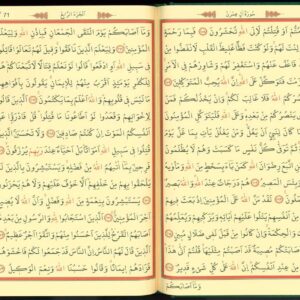 سورة آل عمران
وَلَئِنْ مُتُّمْ أَوْ قُتِلْتُمْ لَإِلَى اللهِ تُحْشَرُونَ فَبِمَا رَحْمَةٍ
مِنَ اللهِ لِنْتَ لَهُمْ وَلَوْ كُنْتَ فَظًّا غَلِيظَ الْقَلْبِ لَانْفَضُّوا مِنْ
حَوْلِكَ فَاعْفُ عَنْهُمْ وَاسْتَغْفِرْ لَهُمْ وَشَاوِرْهُمْ فِي الْأَمْرِ فَإِذَا
عَزَمْتَ فَتَوَكَّلْ عَلَى اللهِ إِنَّ اللهَ يُحِبُّ الْمُتَوَكِّلِينَ إِنْ
يَنْصُرْكُمُ اللهُ فَلَا غَالِبَ لَكُمْ وَإِنْ يَخْذُلْكُمْ فَمَنْ ذَا
الَّذِي يَنْصُرُكُمْ مِنْ بَعْدِهِ وَعَلَى اللهِ فَلْيَتَوَكَّلِ الْمُؤْمِنُونَ
وَمَا كَانَ لِنَبِيٍّ أَنْ يَغُلَّ وَمَنْ يَغْلُلْ يَأْتِ بِمَا غَلَّ يَوْمَ الْقِيٰمَةِ
ثُمَّ تُوَفَّى كُلُّ نَفْسٍ مَا كَسَبَتْ وَهُمْ لَا يُظْلَمُونَ أَفَمَنِ اتَّبَعَ
رِضْوَانَ اللهِ كَمَنْ بَاءَ بِسَخَطٍ مِنَ اللهِ وَمَأْوٰيهُ جَهَنَّمُ وَبِئْسَ الْمَصِيرُ
هُمْ دَرَجَاتٌ عِنْدَ اللهِ وَاللهُ بَصِيرٌ بِمَا يَعْمَلُونَ لَقَدْ مَنَّ
اللهُ عَلَى الْمُؤْمِنِينَ إِذْ بَعَثَ فِيهِمْ رَسُولًا مِنْ أَنْفُسِهِمْ يَتْلُوا
عَلَيْهِمْ اٰيَاتِهِ وَيُزَكِّيهِمْ وَيُعَلِّمُهُمُ الْكِتَابَ وَالْحِكْمَةَ
وَإِنْ كَانُوا مِنْ قَبْلُ لَفِي ضَلَالٍ مُبِينٍ أَوَلَمَّا
أَصَابَتْكُمْ مُصِيبَةٌ قَدْ أَصَبْتُمْ مِثْلَيْهَا قُلْتُمْ أَنَّى هٰذَا
قُلْ هُوَ مِنْ عِنْدِ أَنْفُسِكُمْ إِنَّ اللهَ عَلَى كُلِّ شَيْءٍ قَدِيرٌ
وَمَا أَصَابَكُمْ
الجزء الرابع ٧١
وَمَا أَصَابَكُمْ يَوْمَ الْتَقَى الْجَمْعَانِ فَبِإِذْنِ اللهِ وَلِيَعْلَمَ
الْمُؤْمِنِينَ وَلِيَعْلَمَ الَّذِينَ نَافَقُوا وَقِيلَ لَهُمْ تَعَالَوْا قَاتِلُوا
فِي سَبِيلِ اللهِ أَوِ ادْفَعُوا قَالُوا لَوْ نَعْلَمُ قِتَالًا لَاتَّبَعْنَاكُمْ هُمْ
لِلْكُفْرِ يَوْمَئِذٍ أَقْرَبُ مِنْهُمْ لِلْإِيمَانِ يَقُولُونَ بِأَفْوَاهِهِمْ
مَا لَيْسَ فِي قُلُوبِهِمْ وَاللهُ أَعْلَمُ بِمَا يَكْتُمُونَ الَّذِينَ قَالُوا
لِإِخْوَانِهِمْ وَقَعَدُوا لَوْ أَطَاعُونَا مَا قُتِلُوا قُلْ فَادْرَؤُا عَنْ
أَنْفُسِكُمُ الْمَوْتَ إِنْ كُنْتُمْ صَادِقِينَ وَلَا تَحْسَبَنَّ الَّذِينَ
قُتِلُوا فِي سَبِيلِ اللهِ أَمْوَاتًا بَلْ أَحْيَاءٌ عِنْدَ رَبِّهِمْ يُرْزَقُونَ
فَرِحِينَ بِمَا اٰتٰيهُمُ اللهُ مِنْ فَضْلِهِ وَيَسْتَبْشِرُونَ بِالَّذِينَ لَمْ
يَلْحَقُوا بِهِمْ مِنْ خَلْفِهِمْ أَلَّا خَوْفٌ عَلَيْهِمْ وَلَا هُمْ يَحْزَنُونَ
يَسْتَبْشِرُونَ بِنِعْمَةٍ مِنَ اللهِ وَفَضْلٍ وَأَنَّ اللهَ لَا يُضِيعُ
أَجْرَ الْمُؤْمِنِينَ الَّذِينَ اسْتَجَابُوا لِلّٰهِ وَالرَّسُولِ مِنْ بَعْدِ مَا
أَصَابَهُمُ الْقَرْحُ لِلَّذِينَ أَحْسَنُوا مِنْهُمْ وَاتَّقَوْا أَجْرٌ عَظِيمٌ
الَّذِينَ قَالَ لَهُمُ النَّاسُ إِنَّ النَّاسَ قَدْ جَمَعُوا لَكُمْ فَاخْشَوْهُمْ
فَزَادَهُمْ إِيمَانًا وَقَالُوا حَسْبُنَا اللهُ وَنِعْمَ الْوَكِيلُ